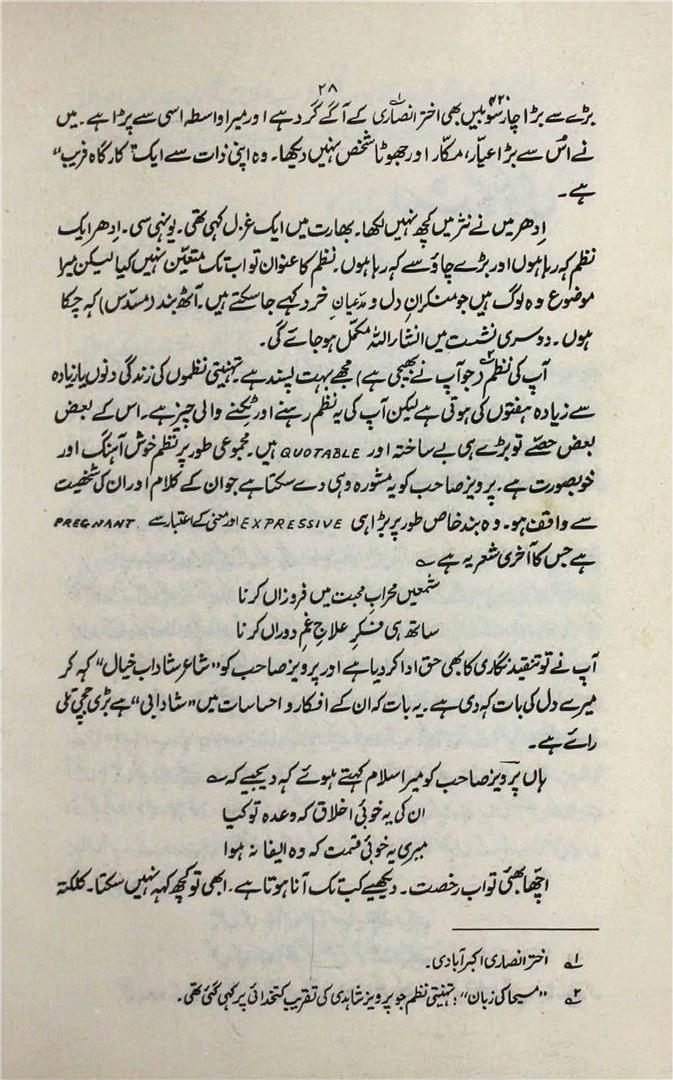 ۲۸
بڑے سے بڑا چار سو بیس ۴۲۰ بھی اختر انصاری۱ کے آگے گرد ہے اور میرا واسطہ اسی سے پڑا ہے۔ میں
نے اُس سے بڑا عیّار، مکّار اور جھوٹا شخص نہیں دیکھا۔ وہ اپنی ذات سے ایک "کارگاہِ فریب"
ہے۔
اِدھر میں نے نثر میں کچھ نہیں لکھا۔ بھارت میں ایک غزل کہی تھی۔ یونہی سی۔ اِدھر ایک
نظم کہہ رہا ہوں اور بڑے چاؤ سے کہہ رہا ہوں۔ نظم کا عنوان تو اب تک متعیّن نہیں کیا لیکن میرا
موضوع وہ لوگ ہیں جو منکرانِ دل و مدّعیانِ خرد کہے جا سکتے ہیں۔ آٹھ بند (مسدّس) کہہ چکا
ہوں۔ دوسری نشست میں انشاء اللہ مکمّل ہو جائے گی۔
آپ کی نظم۲ (جو آپ نے بھیجی ہے) مجھے بہت پسند ہے۔ تہنیتی نظموں کی زندگی دنوں یا زیادہ
سے زیادہ ہفتوں کی ہوتی ہے لیکن آپ کی یہ نظم رہنے اور ٹِکنے والی چیز ہے۔ اس کے بعض
بعض حصّے تو بڑے ہی بے ساختہ اور QUOTABLE ہیں۔ مجموعی طور پر نظم خوش آہنگ اور
خوبصورت ہے۔ پرویز صاحب کو یہ مشورہ وہی دے سکتا ہے جو ان کے کلام اور ان کی شخصیت
سے واقف ہو۔ وہ بند خاص طور پر بڑا ہی EXPRESSIVE اور معنی کے اعتبار سے PREGNANT
ہے جس کا آخری شعر یہ ہے ؎
شمعیں محرابِ محبت میں فروزاں کرنا
ساتھ ہی فکرِ علاجِ غمِ دوراں کرنا
آپ نے تو تنقید نگاری کا بھی حق ادا کر دیا ہے اور پرویز صاحب کو "شاعرِ شاداب خیال" کہہ کر
میرے دل کی بات کہہ دی ہے۔ یہ بات کہ ان کے افکار و احساسات میں "شادابی" ہے بڑی جچی تلی
رائے ہے۔
ہاں پرویز صاحب کو میرا سلام کہتے ہوئے کہہ دیجیے کہ ؎
ان کی یہ خوبئ اخلاق کہ وعدہ تو کیا
میری یہ خوبئ قسمت کہ وہ ایفا نہ ہوا
اچھّا بھئی تو اب رخصت۔ دیکھیے کب تک آنا ہوتا ہے۔ ابھی تو کچھ کہہ نہیں سکتا۔ کلکتہ
۱؎ اختر انصاری اکبر آبادی۔
۲؎ "مسیحا کی زبان"؛ تہنیتی نظم جو پرویز شاہدی کی تقریب کتخدائی پر کہی گئی تھی۔